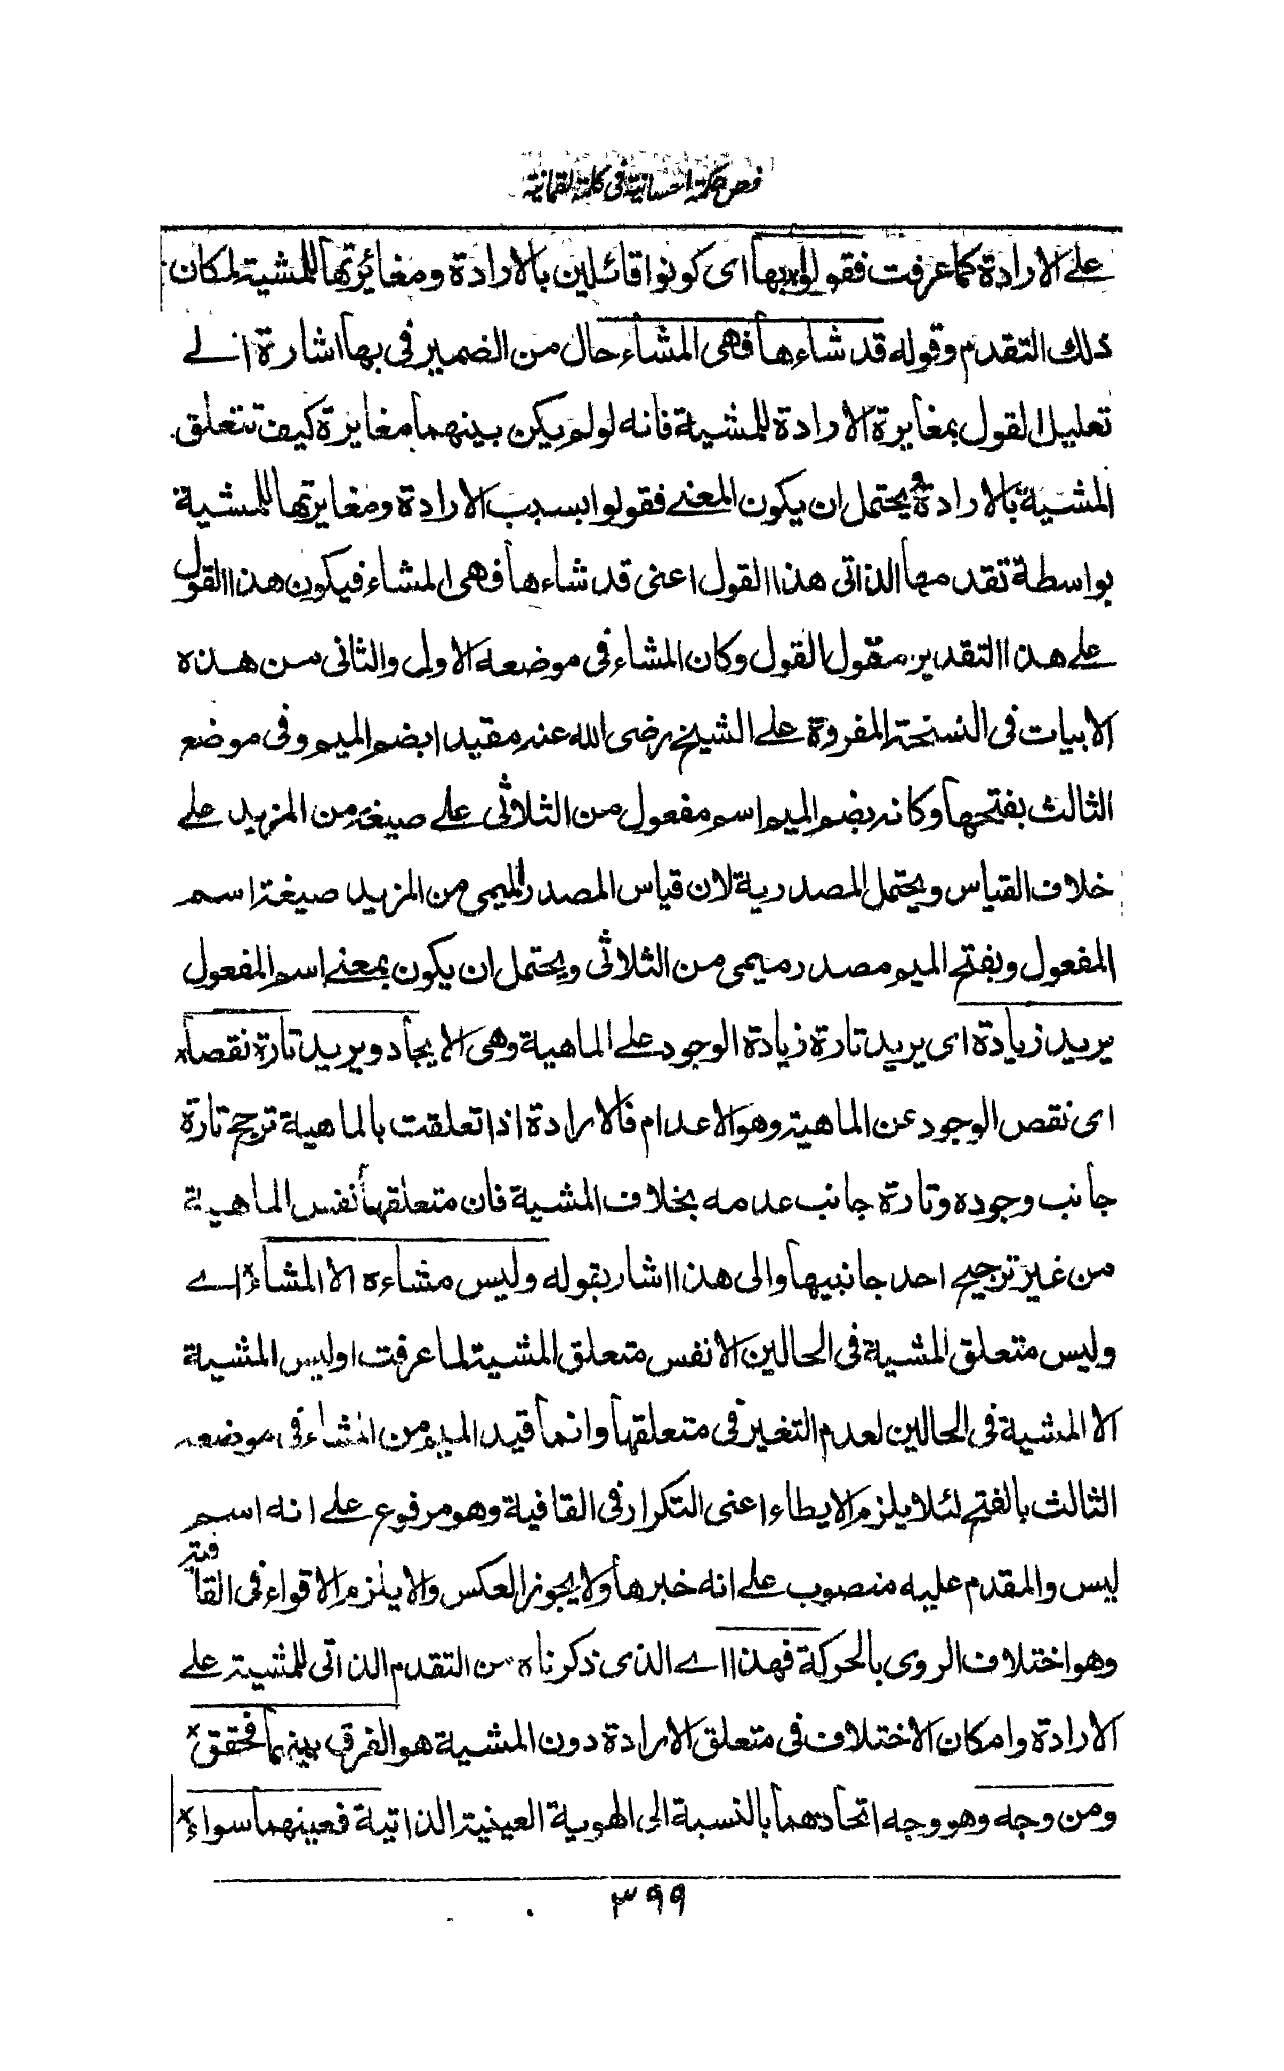 فص حكمة احسانية فى كلمة لقمانية
على الارادة كما عرفت فقولوا بها اى كونوا قائلين بالارادة ومغائرتها للمشية لمكان
ذلك التقدم وقوله قد شاءها فهى المشاء حال من الضمير فى بها اشارة الے
تعليل القول بمغايرة الارادة للمشية فانه لو لم يكن بينهما مغايرة كيف تتعلق
المشية بالارادة ويحتمل ان يكون المعنے فقولوا بسبب الارادة ومغايرتها للمشية
بواسطة تقدمها الذاتى هذا القول اعنى قد شاءها فهى المشاء فيكون هذا القول
علے هذا التقدير مقول القول وكان المشاء فى موضعه الاول والثانى من هذه
الابيات فى النسخة المقروة علے الشيخ رضى الله عنه مقيدا بضم الميم وفى موضع
الثالث بفتحها وكانه بضم الميم اسم مفعول من الثلاثى علے صيغة من المزيد علے
خلاف القياس ويحتمل المصدرية لان قياس المصدر الميمى من المزيد صيغة اسم
المفعول وبفتح الميم مصدر ميمى من الثلاثى ويحتمل ان يكون بمعنے اسم المفعول
يريد زيادة اى يريد تارة زيادة الوجود علے الماهية وهى الايجاد ويريد تارة نقصا×
اى نقص الوجود عن الماهية وهو الاعدام فالارادة اذا تعلقت بالماهية ترجح تارة
جانب وجوده وتارة جانب عدمه بخلاف المشية فان متعلقها نفس الماهية
من غير ترجيح احد جانبيها والى هذا اشار بقوله وليس مشاءه الا المشاء× اے
وليس متعلق المشية فى الحالين الا نفس متعلق المشية لما عرفت او ليس المشية
الا المشية فى الحالين لعدم التغير فى متعلقها وانما قيد الميم من المشاء فى موضعه
الثالث بالفتح لئلا يلزم الايطاء اعنى التكرار فى القافية وهو مرفوع علے انه اسم
ليس والمقدم عليه منصوب علے انه خبرها ولا يجوز العكس والا يلزم الاقواء فى القافية
وهو اختلاف الروى بالحركة فهذا اے الذى ذكرناه من التقدم الذاتى للمشية علے
الارادة وامكان الاختلاف فى متعلق الارادة دون المشية هو الفرق بينهما فحقق×
ومن وجه وهو وجه اتحادهما بالنسبة الى الهوية العينية الذاتية فعينهما سواء×
٣٩٩